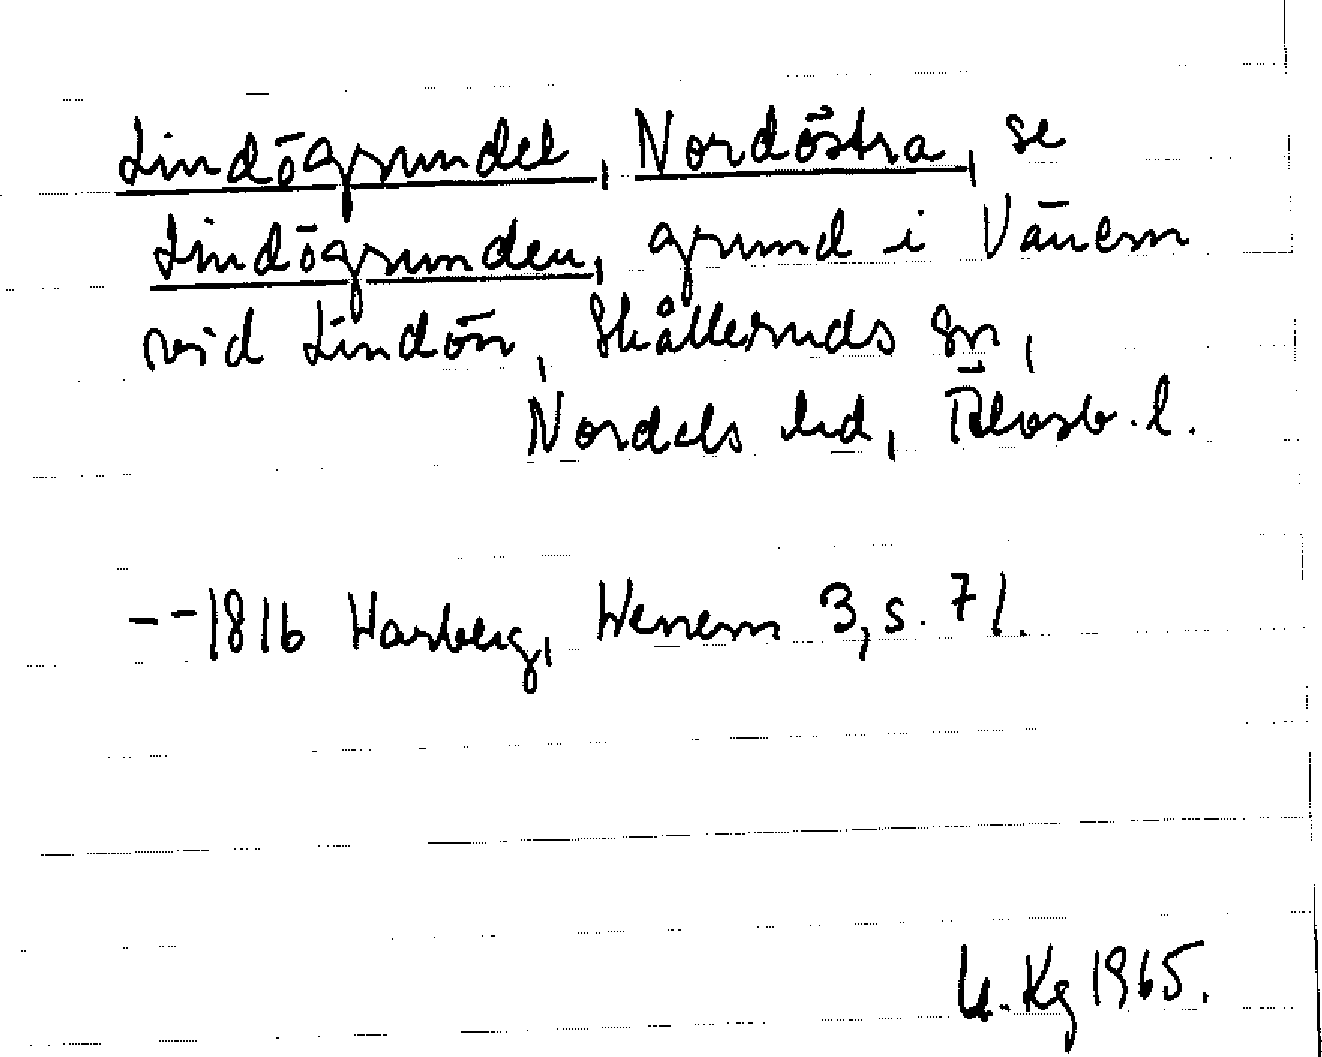 Lindögrundet, Nordöstra, se
Lindögrunden, grund i Vänern
vid Lindön, Skålleruds sn,
Nordals hd, Älvsb. l.
-- 1816 Warberg, Wenern 3, s. 71.
Kg 1965.